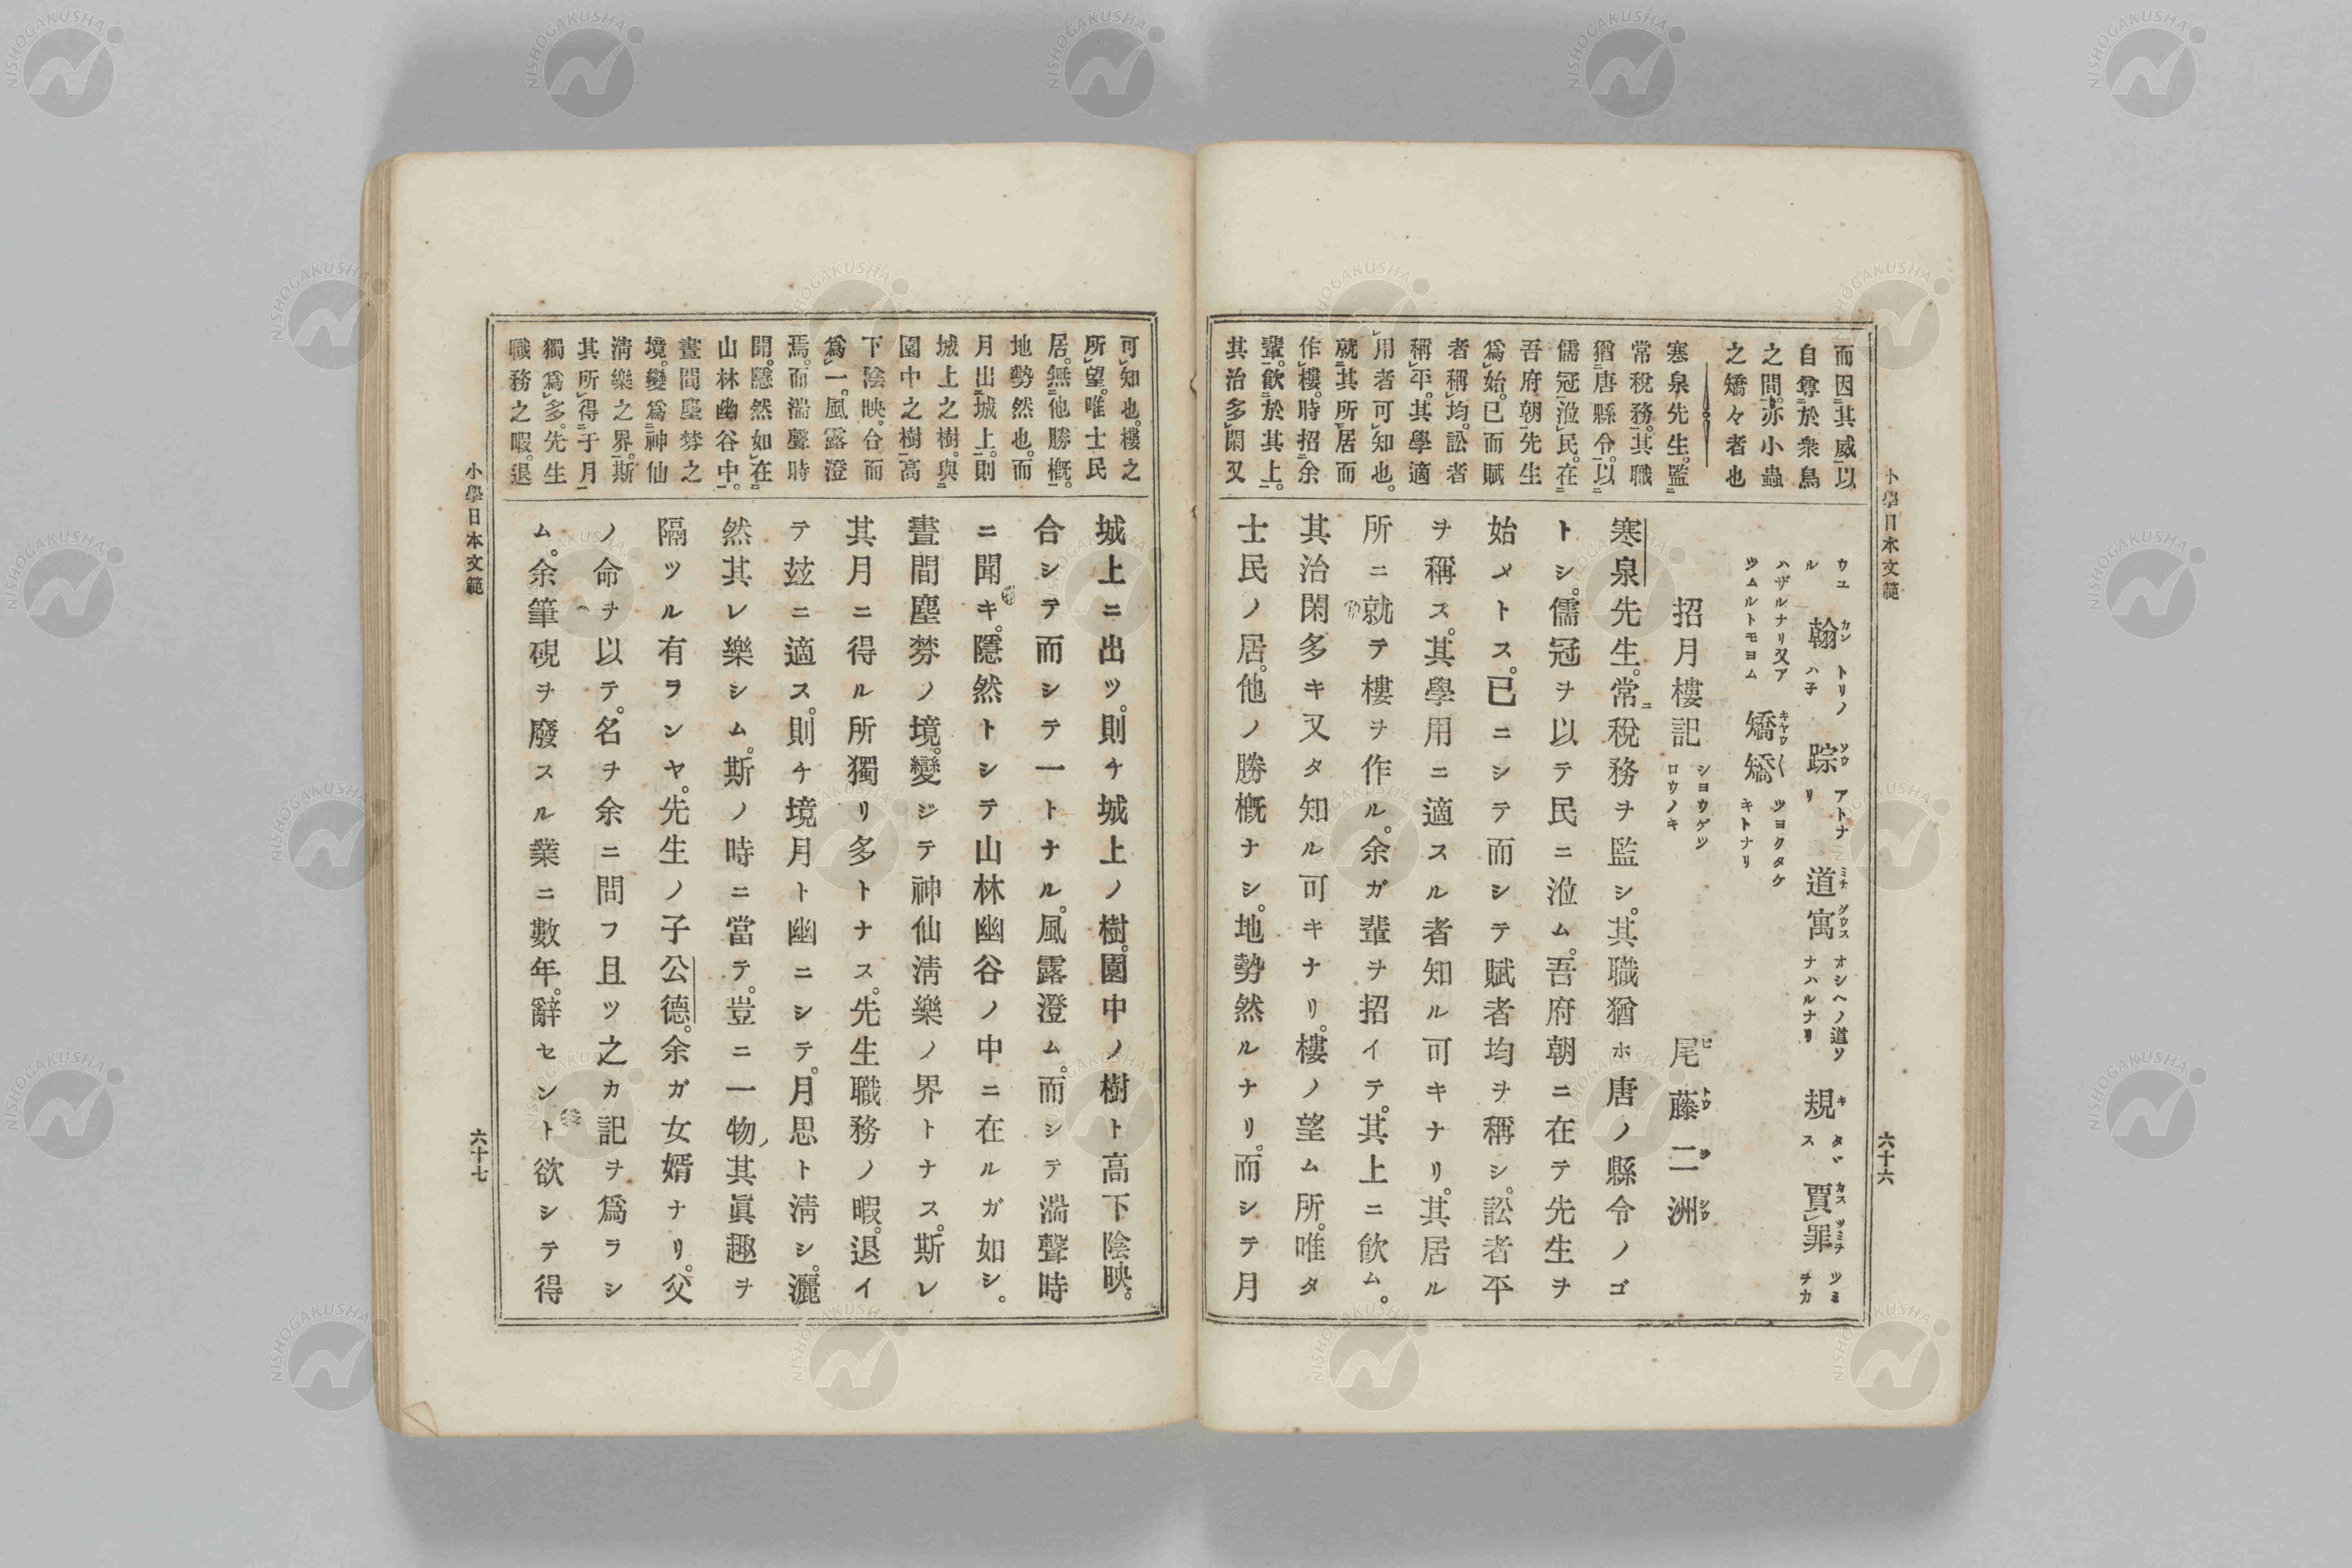 小學日本文範
六十六
而因其威以
自尊於衆鳥
之間。亦小蟲
之矯々者也
寒泉先生。監
常稅務。其職
猶唐縣令。以
儒冠涖民。在
吾府朝先生
爲始。已而賦
者稱均。訟者
稱平。其學適
用者可知也。
就其所居而
作樓。時招余
輩。飮於其上。
其治多閑又
ウユ
ル
翰カン
トリノ
ハ子
踪ソウ
アトナ
リ
道寓ミチグウス
オシヘノ道ソ
ナハルナリ
規キ
タヾ
ス
賈罪カスツミヲ
ツミ
ヲカ
ハザルナリ又ア
ツムルトモヨム
矯矯キヤウ〱
ツヨクタケ
キトナリ
招月樓記
シヨウゲツ
ロウノキ
尾藤二洲
寒泉先生。常ニ稅務ヲ監シ。其職猶ホ唐ノ縣令ノゴ
トシ。儒冠ヲ以テ民ニ涖ム。吾府朝ニ在テ先生ヲ
始メトス。已ニシテ而シテ賦者均ヲ稱シ。訟者平
ヲ稱ス。其學用ニ適スル者知ル可キナリ。其居ル
所ニ就テ樓ヲ作ル。余ガ輩ヲ招イテ。其上ニ飮ム。
其治閑多キ又タ知ル可キナリ。樓ノ望ム所。唯タ
士民ノ居。他ノ勝概ナシ。地勢然ルナリ。而シテ月
可知也。樓之
所望。唯士民
居。無他勝概。
地勢然也。而
月出城上。則
城上之樹。與
園中之樹高
下陰映。合而
爲一。風露澄
焉。而湍聲時
聞。隱然如在
山林幽谷中。
晝間塵棼之
境。變爲神仙
淸樂之界。斯
其所得于月
獨爲多。先生
職務之暇。退
城上ニ出ツ。則チ城上ノ樹。園中ノ樹ト高下陰映。
合シテ而シテ一トナル。風露澄ム。而シテ湍聲時
ニ聞キ。隱然トシテ山林幽谷ノ中ニ在ルガ如シ。
晝間塵棼ノ境。變ジテ神仙淸樂ノ界トナス。斯レ
其月ニ得ル所獨リ多トナス。先生職務ノ暇。退イ
テ玆ニ適ス。則チ境月ト幽ニシテ。月思ト淸シ。灑
然其レ樂シム。斯ノ時ニ當テ。豈ニ一物ノ其眞趣ヲ
隔ツル有ランヤ。先生ノ子公德。余ガ女婿ナリ。父
ノ命ヲ以テ。名ヲ余ニ問フ且ツ之カ記ヲ爲ラシ
ム。余筆硯ヲ廢スル業ニ數年。辭セント欲シテ得
小學日本文範
六十七